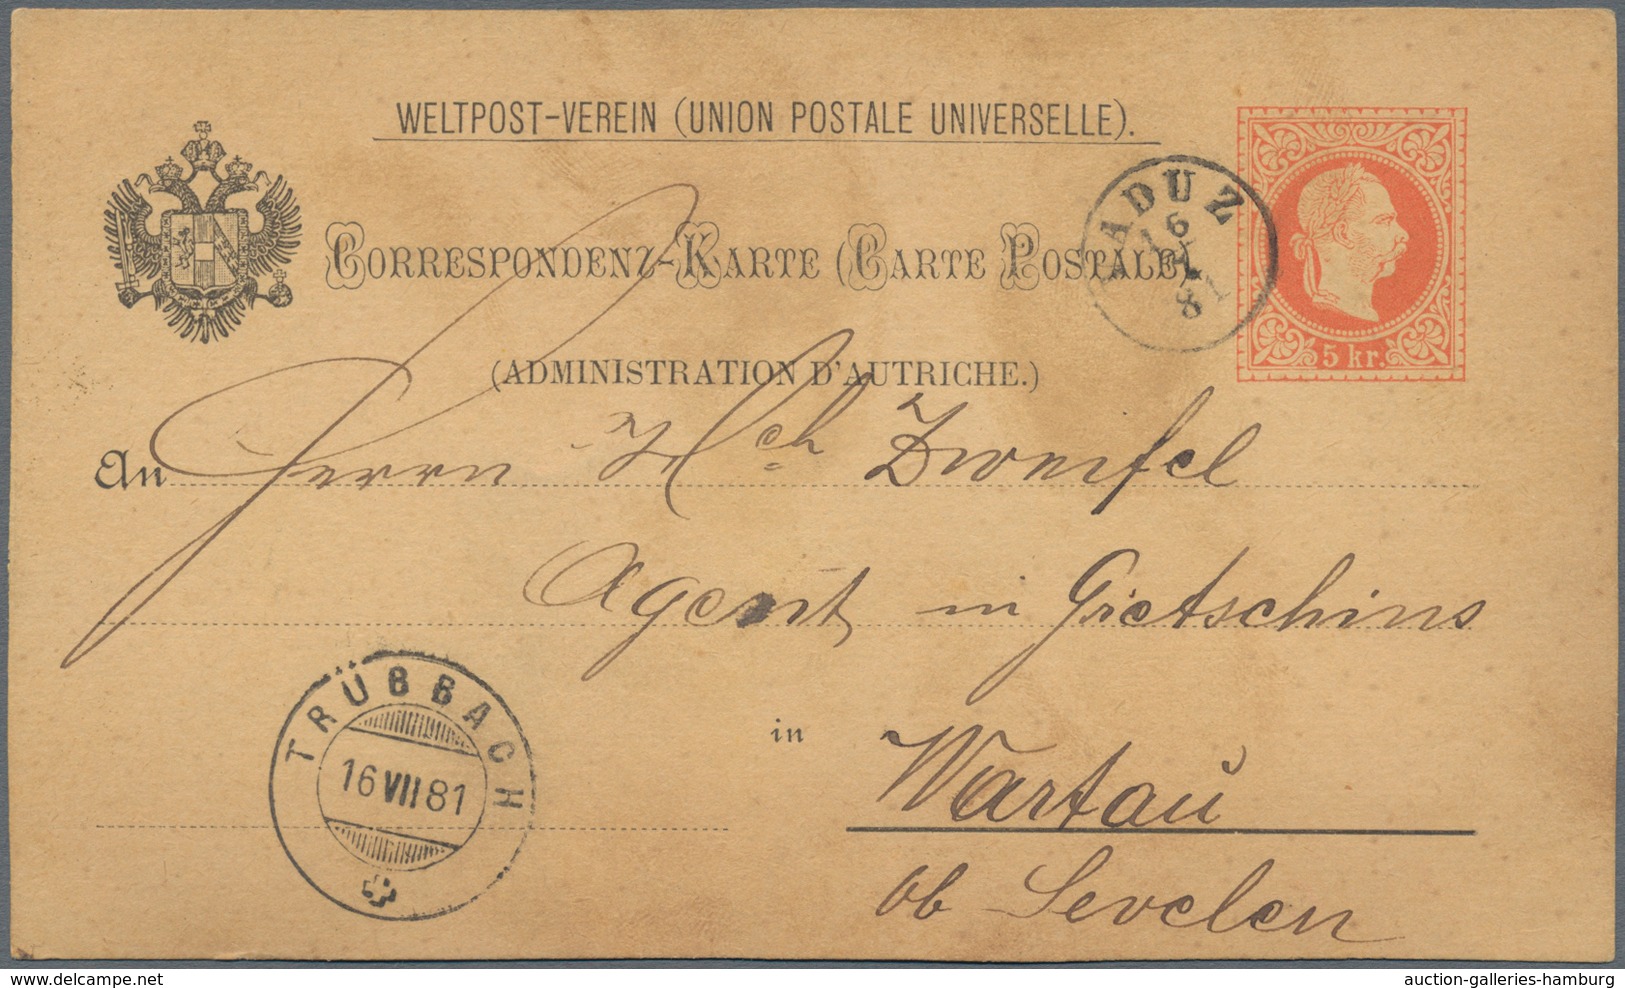 WELTPOST-VEREIN (UNION POSTALE UNIVERSELLE).
CORRESPONDENZ-KARTE (CARTE POSTALE)
(ADMINISTRATION D'AUTRICHE.)
VADUZ
16
81
5 kr.
An Herrn Hch Zweifel
Agent in Gretschins
in Wartau
ob Sevelen
TRÜBBACH
16 VII 81
auction-galleries-hamburg